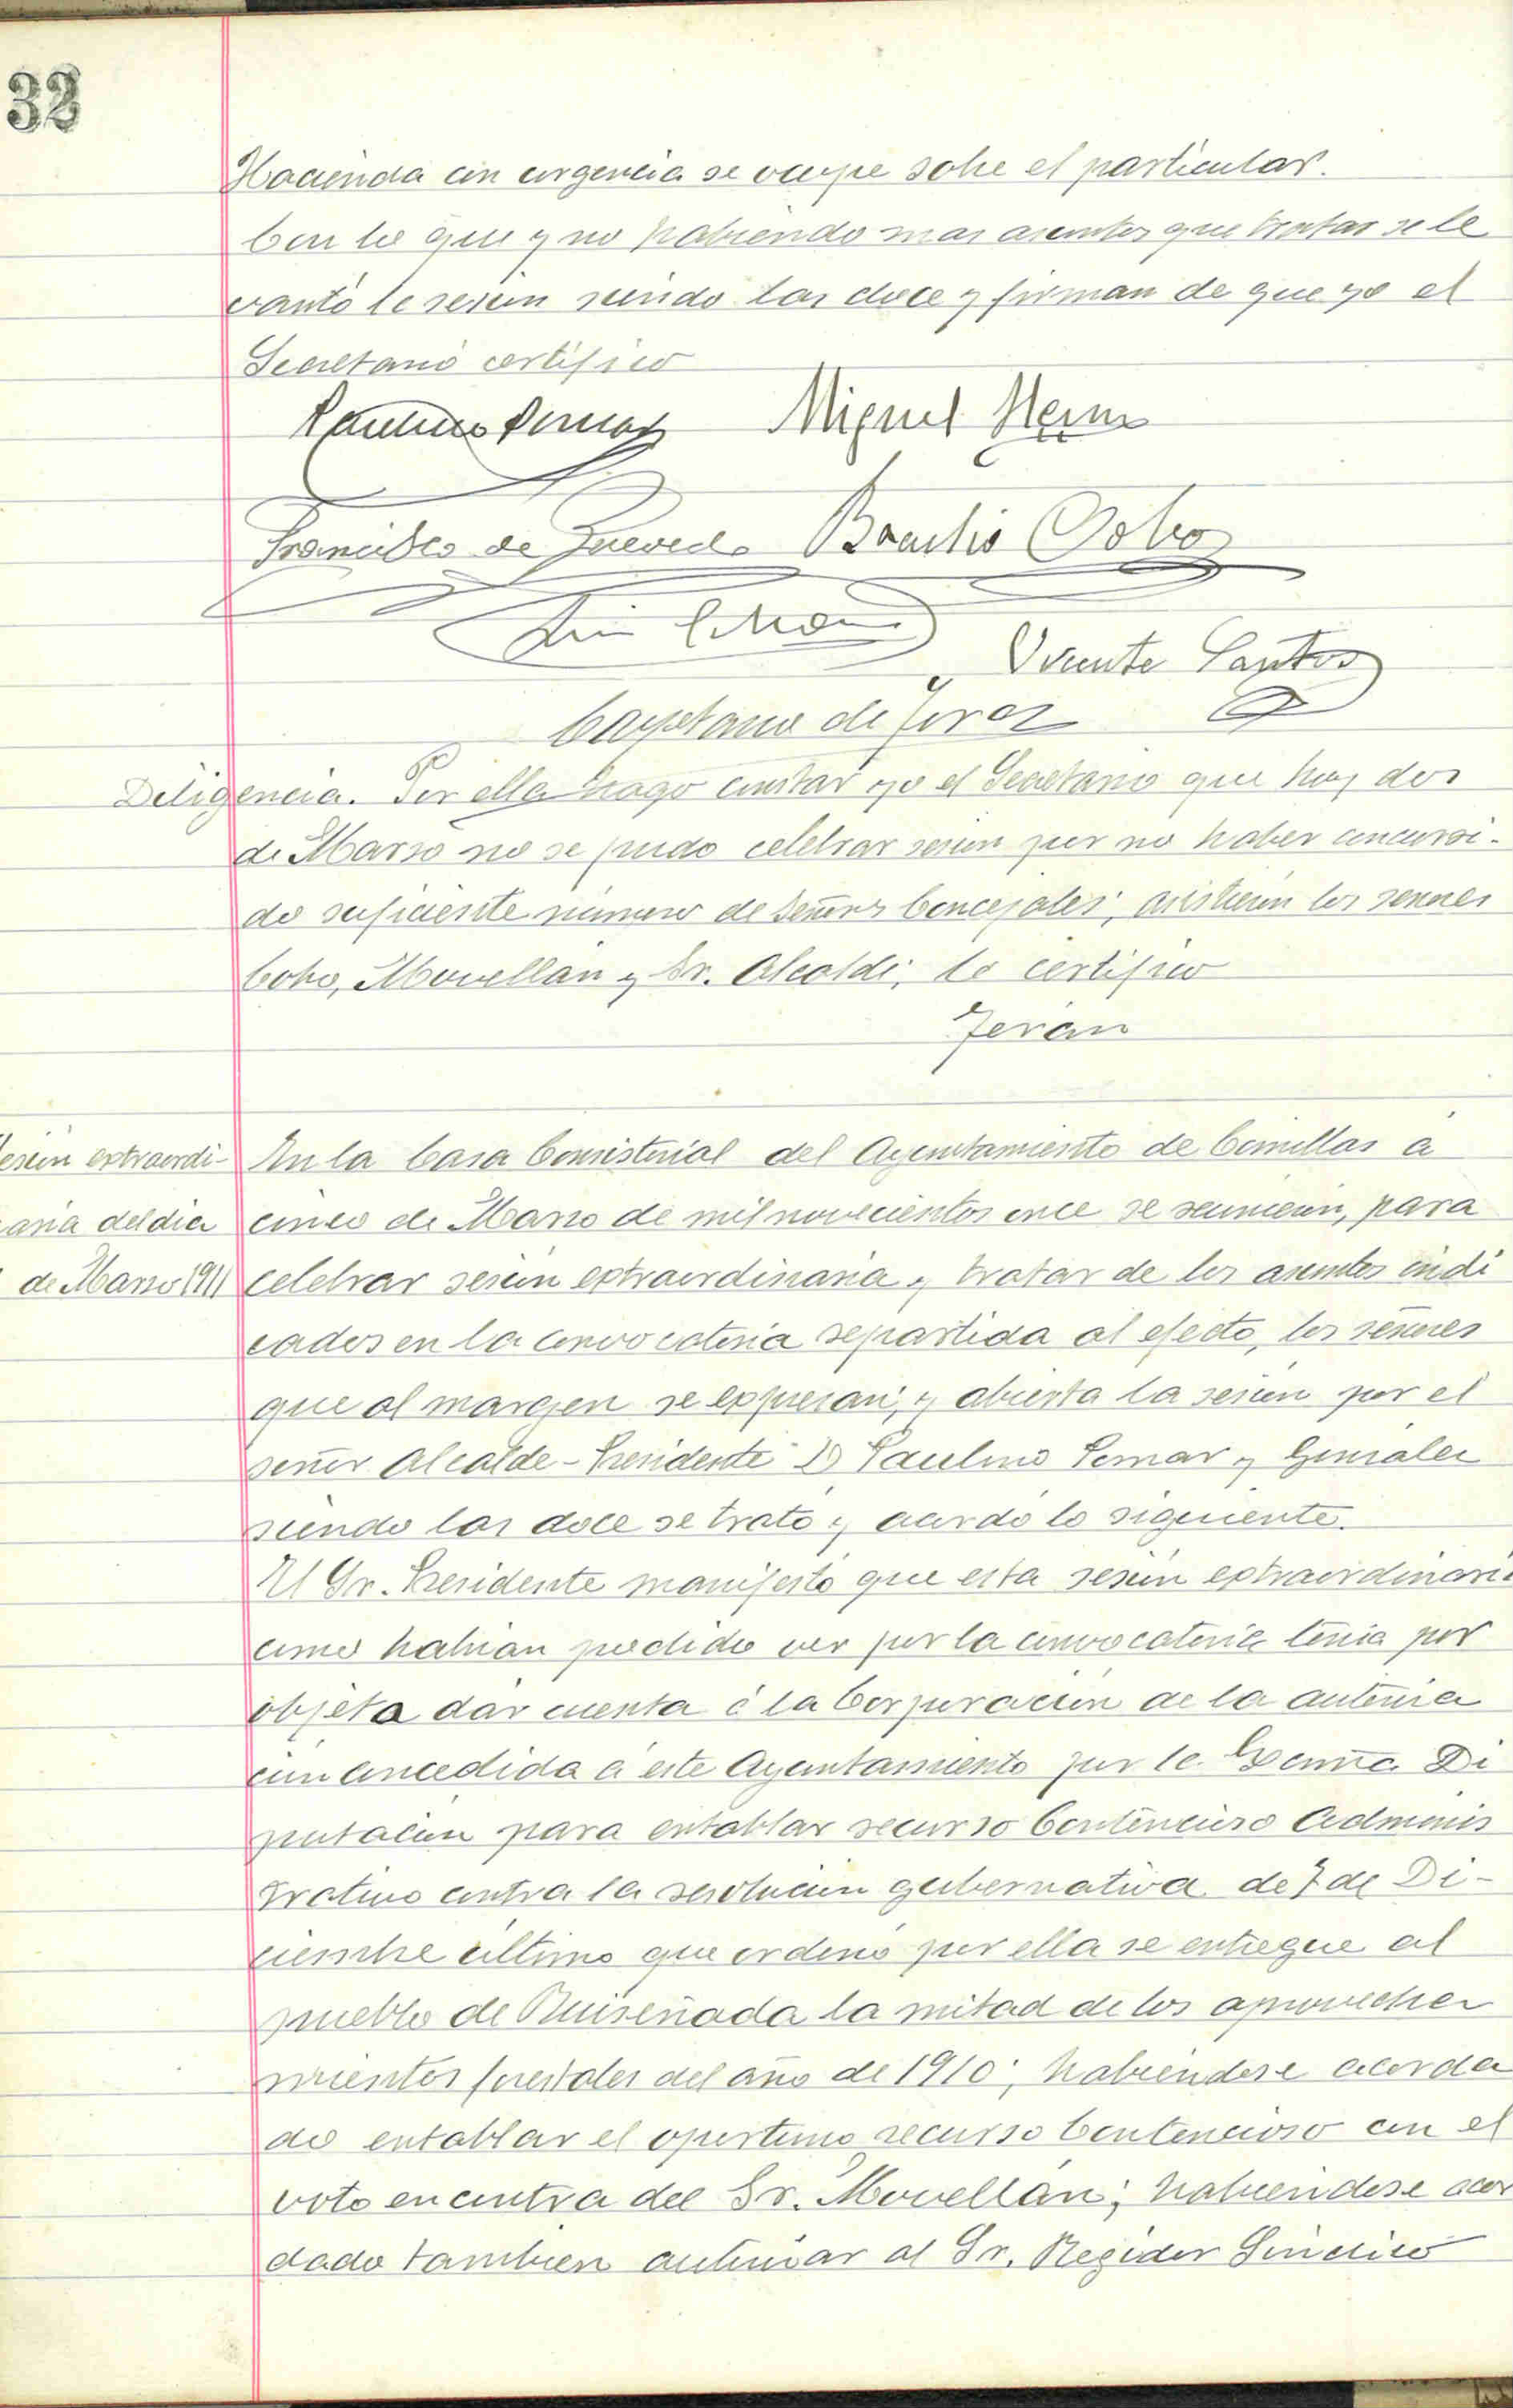 32
Hacienda con urgencia se ocupe sobre el particular.
Con lo que y no habiendo mas asuntos que tratar se le
vantó la sesion siendo las doce y firman de que yo el
Secretario certifico
Paulino Pomar Miguel
Francisco de Quevedo Basilio Cobo
Vicente Santos
Cayetano de Teran
Diligencia. Por ella hago constar yo el Secretario que hoy dos
de Marzo no se pudo celebrar sesion por no haber concurri-
do suficiente número de Señores Concejales; asistieron los señores
Cobo, Movellán y Sr. Alcalde; lo certifico
Terán
esion extraordi-
aria del dia
de Marzo 1911
En la Casa Consistorial del Ayuntamiento de Comillas á
cinco de Marzo de mil novecientos once se reunieron, para
celebrar sesion extraordinaria y tratar de los asuntos indi
cados en la convocatoria repartida al efecto, los señores
que al margen se expresan; y abierta la sesion por el
señor Alcalde-Presidente D Paulino Pomar y Gonzalez
siendo las doce se trató y acordó lo siguiente.
El Sr. Presidente manifestó que esta sesion extraordinaria
como habian podido ver por la convocatoria tenia por
objeto dar cuenta á la Corporacion de la autoriza
cion concedida á este Ayuntamiento por la Excma. Di
putacion para entablar recurso Contencioso Adminis
trativo contra la resolucion gubernativa de 7 de Di-
ciembre último que ordenó por ella se entregue al
pueblo de Ruiseñada la mitad de los aprovecha
mientos forestales del año de 1910; habiendose acorda
do entablar el oportuno recurso Contencioso con el
voto en contra del Sr. Movellán; habiendose acor
dado tambien autorizar al Sr. Regidor Sindico